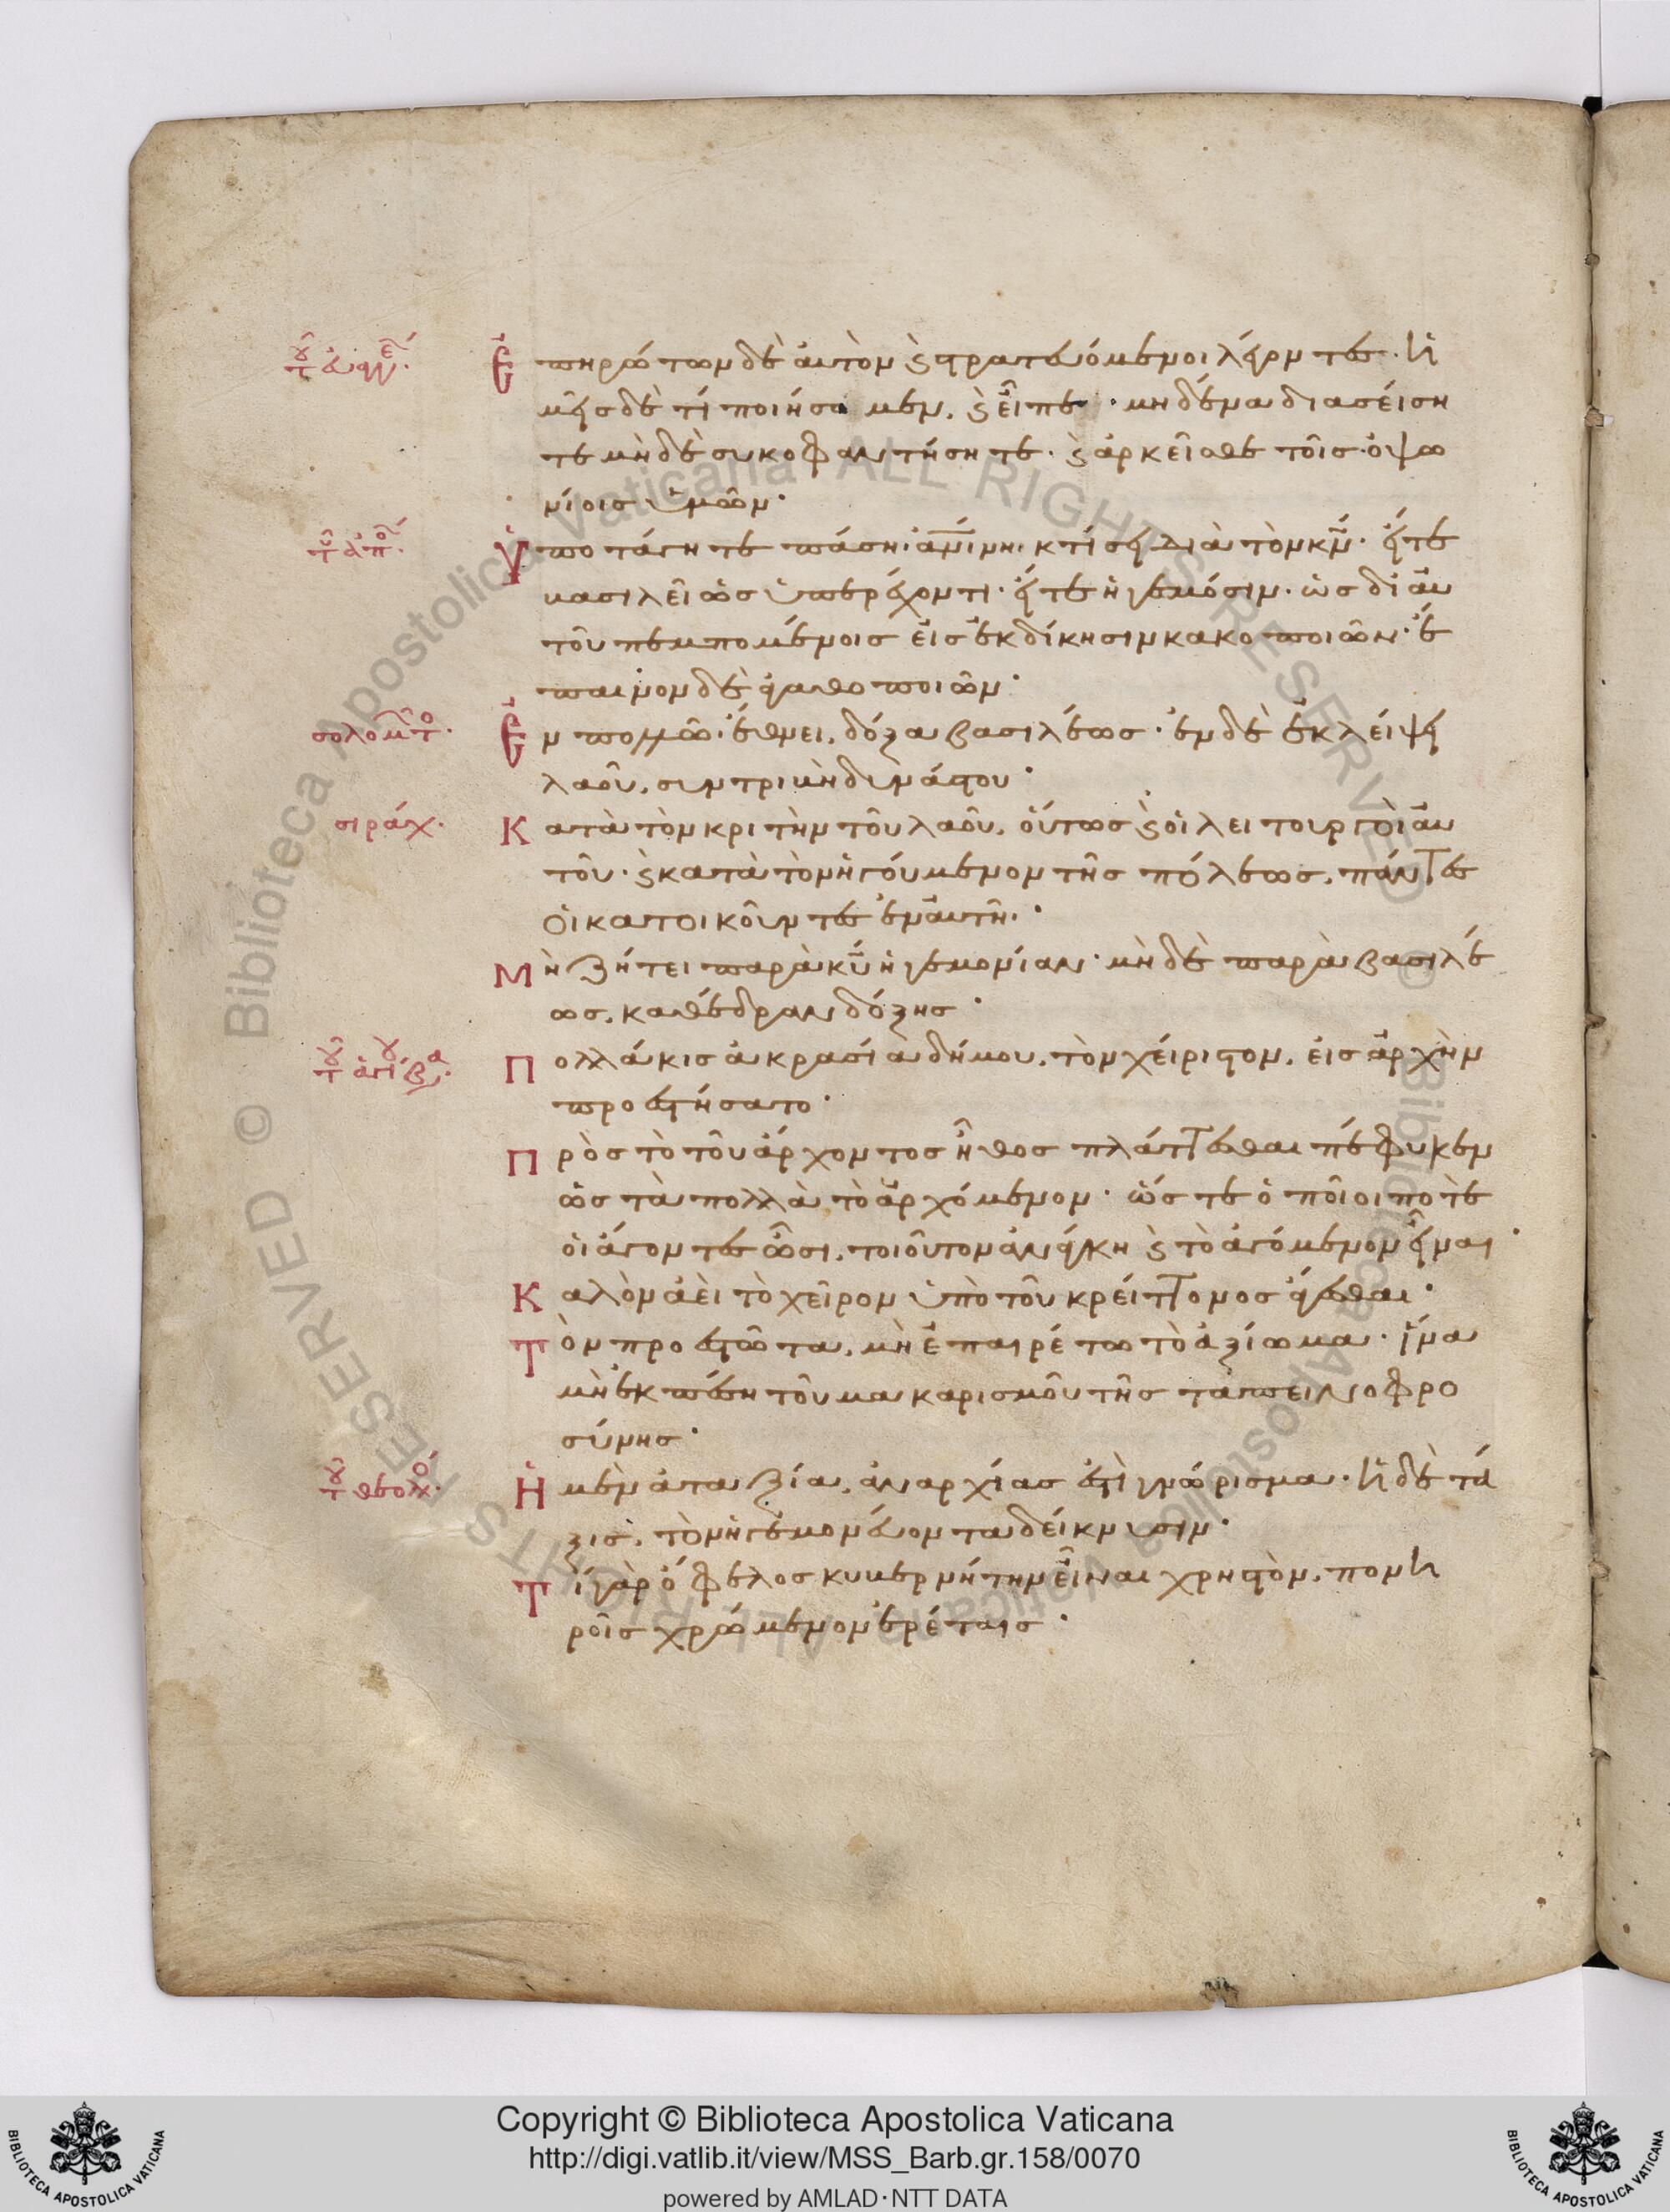 τοῦ εὐαγγελ
Ἐπηρώτων δὲ αὐτὸν ϗ στρατευόμενοι λέγοντες· ἡ
μεῖς δὲ τί ποιήσομεν, ϗ εἶπε· μηδένα διασείση
τε μὴδὲ συκοφαντήσητε· ϗ ἀρκεῖσθε τοῖς ὀψω
νίοις ὑμῶν·
τοῦ ἀπο
Ὑποτάγητε πάση ἀνίνη κτίσει διὰ τὸν κν· εἴτε
βασιλεῖ ὡς ὑπερέχοντι· εἴτε ἡγεμόσιν· ὡς δι αὐ
τοῦ πεμπομένοις εἰς ἐκδίκησιν κακοποιῶν· ἔ
παινον δὲ ἀγαθοποιῶν·
σολομῶντο
Ἐν πολλῶ ἔθνει, δόξα βασιλέως· ἐν δὲ ἐκλείψει
λαοῦ, συντριβὴ δυνάστου·
σιράχ·
Κατὰ τὸν κριτὴν τοῦ λαοῦ, οὕτως ϗ οἱ λειτουργοὶ αὐ
τοῦ· ϗ κατὰ τὸν ἡγούμενον τῆς πόλεως, πάντες
οἱ κατοικοῦντες ἐν αὐτῆ·
Μὴ ζήτει παρὰ κυ ἡγεμονίαν· μὴδὲ παρὰ βασιλέ
ως, καθέδραν δόξης·
τοῦ ἁγίου βα
Πολλάκις ἀκρασία δήμου, τὸν χείριστον, εἰς ἀρχὴν
προεστήσατο·
Πρὸς τὸ τοῦ ἄρχοντος ἦθος πλάττεσθαι πέφυκεν
ὡς τὰ πολλὰ τὸ ἀρχόμενον· ὥστε ὁποῖοι ποτὲ
οἱ ἄγοντες ὦσι, τοιοῦτον ἀνάγκη ϗ τὸ ἀγόμενον εἶναι·
Καλὸν ἀεὶ τὸ χεῖρον ὑπὸ τοῦ κρείττονος ἄγεσθαι·
Τὸν προεστῶτα, μὴ ἐπαιρέτω τὸ ἀξίωμα· ἵνα
μὴ ἐκπέση τοῦ μακαρισμοῦ τῆς ταπεινοφρο
σύνης·
τοῦ θεολό
Ἡ μὲν ἀταξία, ἀναρχίας ἐστὶ γνώρισμα· ἡ δὲ τά
ξις, τὸν ἡγεμονεύοντα δείκνυσιν·
Τί γὰρ ὄφελος κυβερνήτην εἶναι χρηστὸν, πονη
ροῖς χρώμενον ἐρέταις·
Copyright © Biblioteca Apostolica Vaticana
http://digi.vatlib.it/view/MSS_Barb.gr.158/0070
powered by AMLAD·NTT DATA